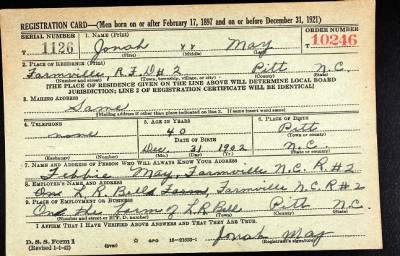 REGISTRATION CARD—(Men born on or after February 17, 1897 and on or before December 31, 1921)
SERIAL NUMBER 1. NAME (Print) ORDER NUMBER
1126 Jonah xx May 10246
(First) (Middle) (Last)
2. PLACE OF RESIDENCE (Print)
Farmville, R.F.D# 2 Pitt N.C.
(Number and street) (Town, township, village, or city) (County) (State)
[THE PLACE OF RESIDENCE GIVEN ON THE LINE ABOVE WILL DETERMINE LOCAL BOARD
JURISDICTION; LINE 2 OF REGISTRATION CERTIFICATE WILL BE IDENTICAL]
3. MAILING ADDRESS
Same
[Mailing address if other than place indicated on line 2. If same insert word same]
4. TELEPHONE 5. AGE IN YEARS 6. PLACE OF BIRTH
none 40 Pitt
DATE OF BIRTH (Town or county)
Dec. 31 1902 N.C.
(Exchange) (Number) (Mo.) (Day) (Yr.) (State or country)
7. NAME AND ADDRESS OF PERSON WHO WILL ALWAYS KNOW YOUR ADDRESS
May, Farmville N.C. R#2
8. EMPLOYER'S NAME AND ADDRESS
On L.R. Bells Farm, Farmville N.C. R#2
9. PLACE OF EMPLOYMENT OR BUSINESS
On the farm of L.R. Bell Pitt N.C.
(Number and street or R. F. D. number) (Town) (County) (State)
I AFFIRM THAT I HAVE VERIFIED ABOVE ANSWERS AND THAT THEY ARE TRUE.
D. S. S. Form 1 Jonah May
(Revised 1-1-42) (over) GPO 16—21630-1 (Registrant's signature)